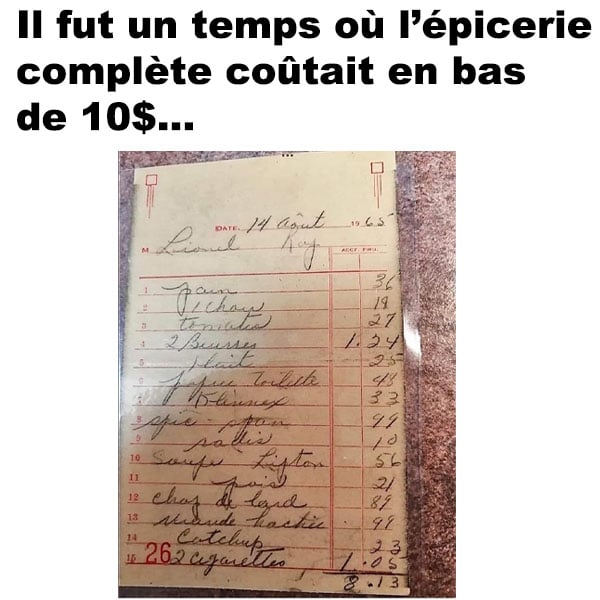 Il fut un temps où l’épicerie
complète coûtait en bas
de 10$...
DATE. 14 Août 1965
M Lionel Roy ACCT. FWD.
1 pain 36
2 1 chou 19
3 tomates 27
4 2 Beurres 1.24
5 1 lait 25
6 papier toilette 48
7 Kleenex 33
8 spic-span 99
9 radis 10
10 Soupe Lipton 56
11 pois 21
12 chop de lard 89
13 viande hachée 99
14 Catchup 23
15 2 cigarettes 1.05
26 8.13